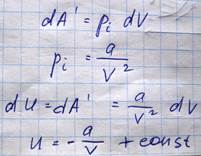 dA' = pᵢ dV
pᵢ = a / V²
dU = dA' = a / V² dV
U = - a / V + const